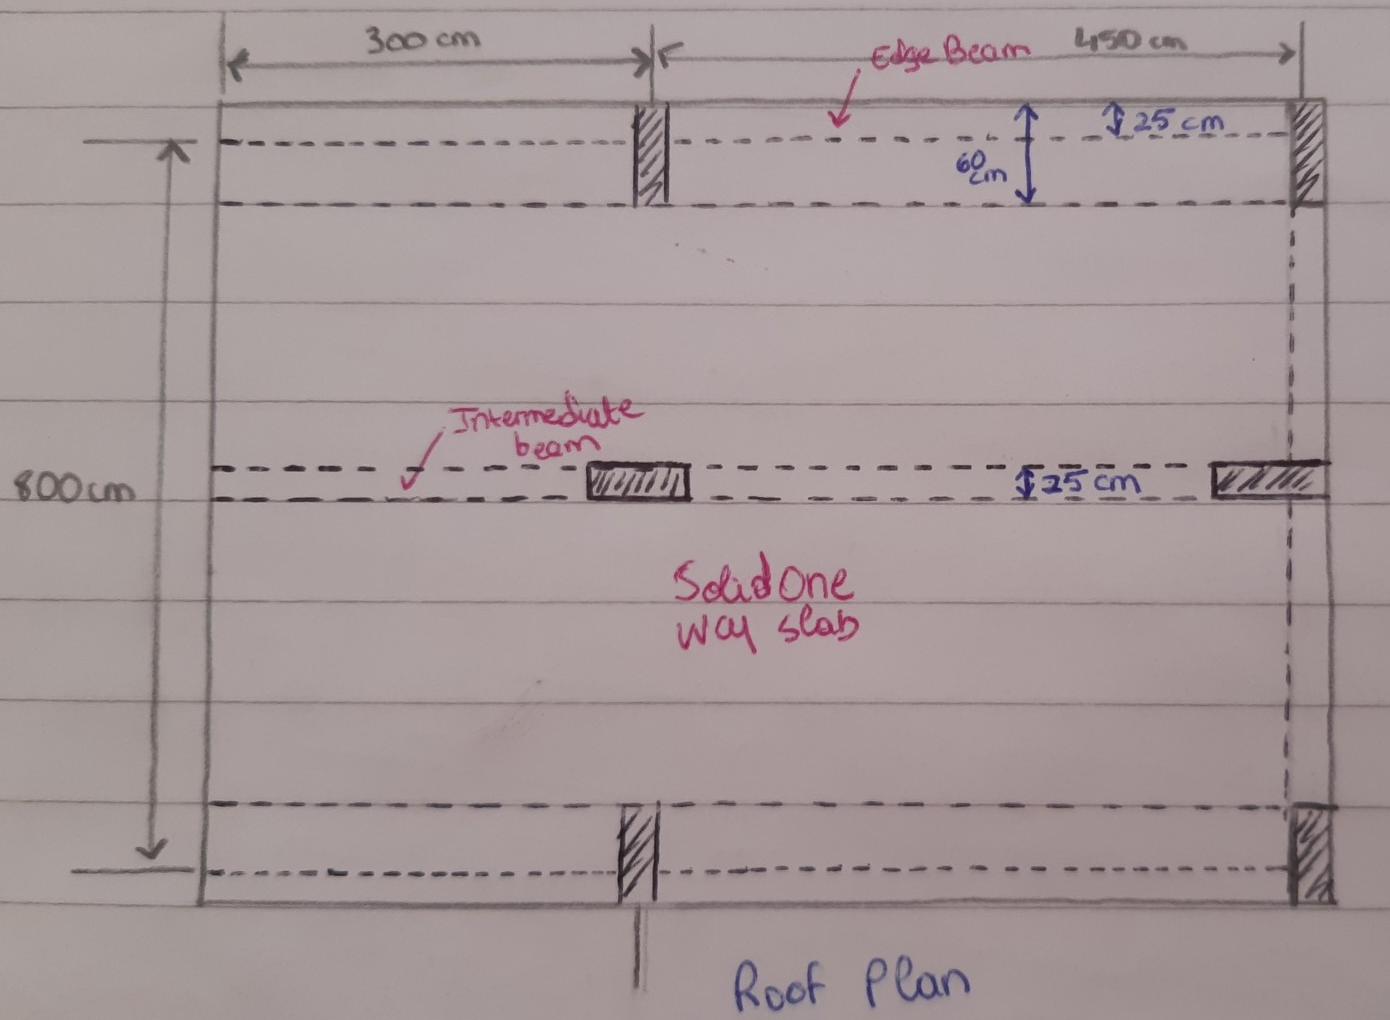 300 cm
450 cm
Edge Beam
25 cm
60
cm
Intermediate
beam
800cm
25 cm
Solid One
way slab
Roof Plan